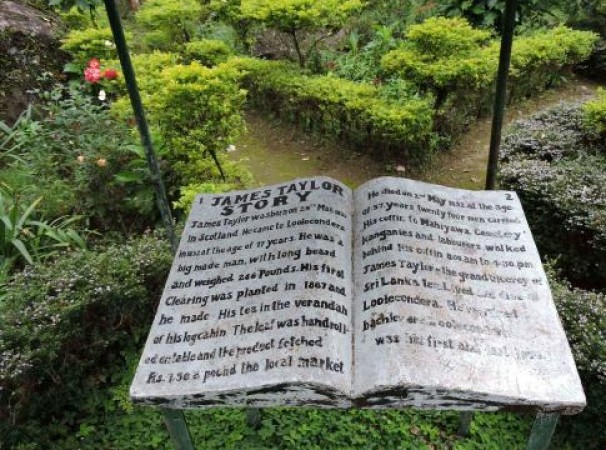 1 JAMES TAYLOR
STORY
James Taylor was born on 29th March
in Scotland. He came to Loolecondera
at the age of 17 years. He was a
big made man, with long beard
and weighed 246 Pounds. His first
Clearing was planted in 1867 and
he made His tea in the verandah
of his logcabin. The leaf was handroll-
ed on table and the product fetched
Rs. 1.50 a pound the local market
2
He died on 2nd May 1892 at the age
of 57 years twenty four men carried
His coffin to Mahiyawa Cemetery
kanganies and labourers walked
behind his coffin 8.00 am to 4.30 pm.
James Taylor - the grand
Sri Lanka tea. Lived and died at
Loolecondera. He
bachler
was his first and last love.